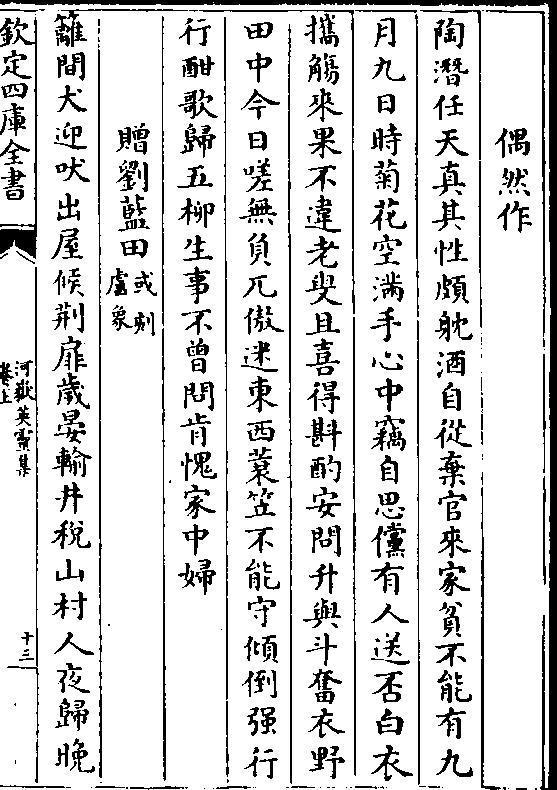 偶然作
陶潛任天真其性頗躭酒自從棄官來家貧不能有九
月九日時菊花空滿手心中竊自思儻有人送否白衣
攜觴來果不違老叟且喜得斟酌安問升與斗奮衣野
田中今日嗟無負兀傲迷東西蓑笠不能守傾倒强行
行酣歌歸五柳生事不曾問肯愧家中婦
贈劉藍田或刻盧象
籬間犬迎吠出屋候荆扉歲晏輸井稅山村人夜歸晚
欽定四庫全書
河嶽英靈集
卷上
十三